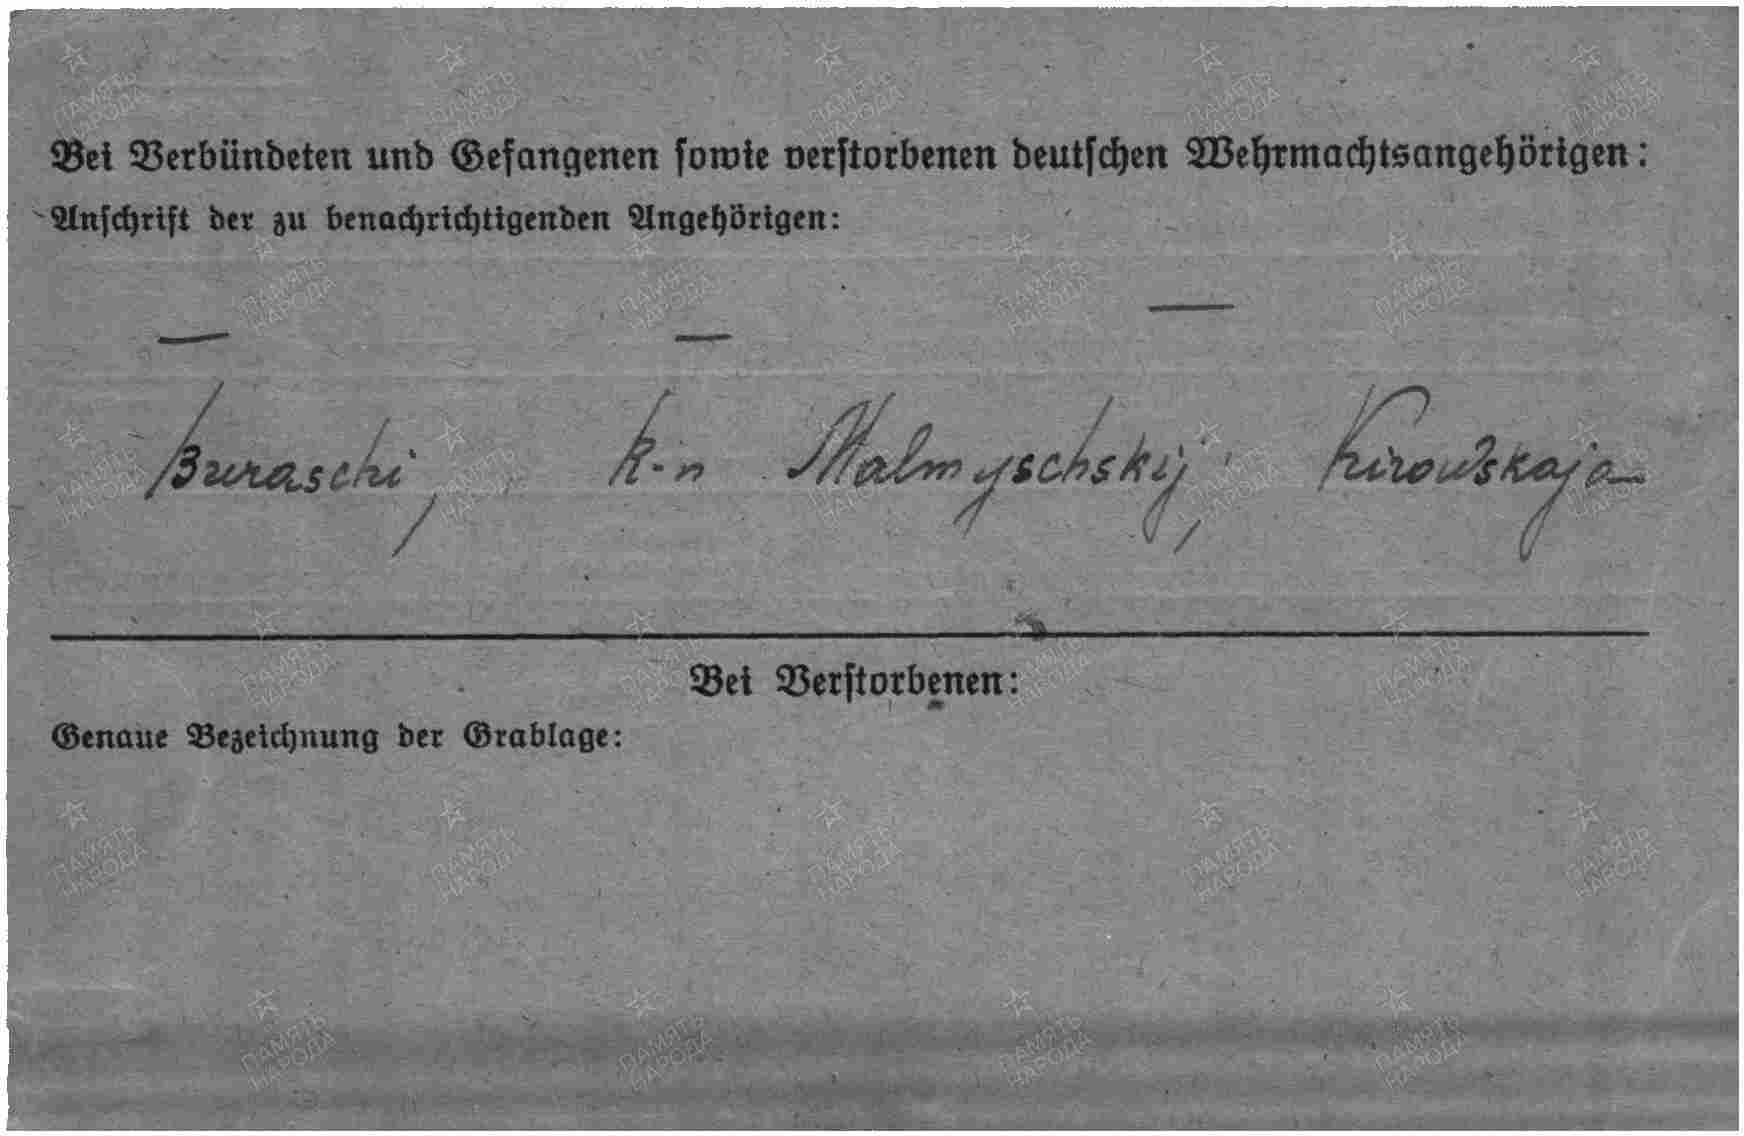 Bei Verbündeten und Gefangenen sowie verstorbenen deutschen Wehrmachtsangehörigen:
Anschrift der zu benachrichtigenden Angehörigen:
— — —
Buraschi, K-n Malmyschskij, Kirowskaja
Bei Verstorbenen:
Genaue Bezeichnung der Grablage:
ПАМЯТЬ НАРОДА